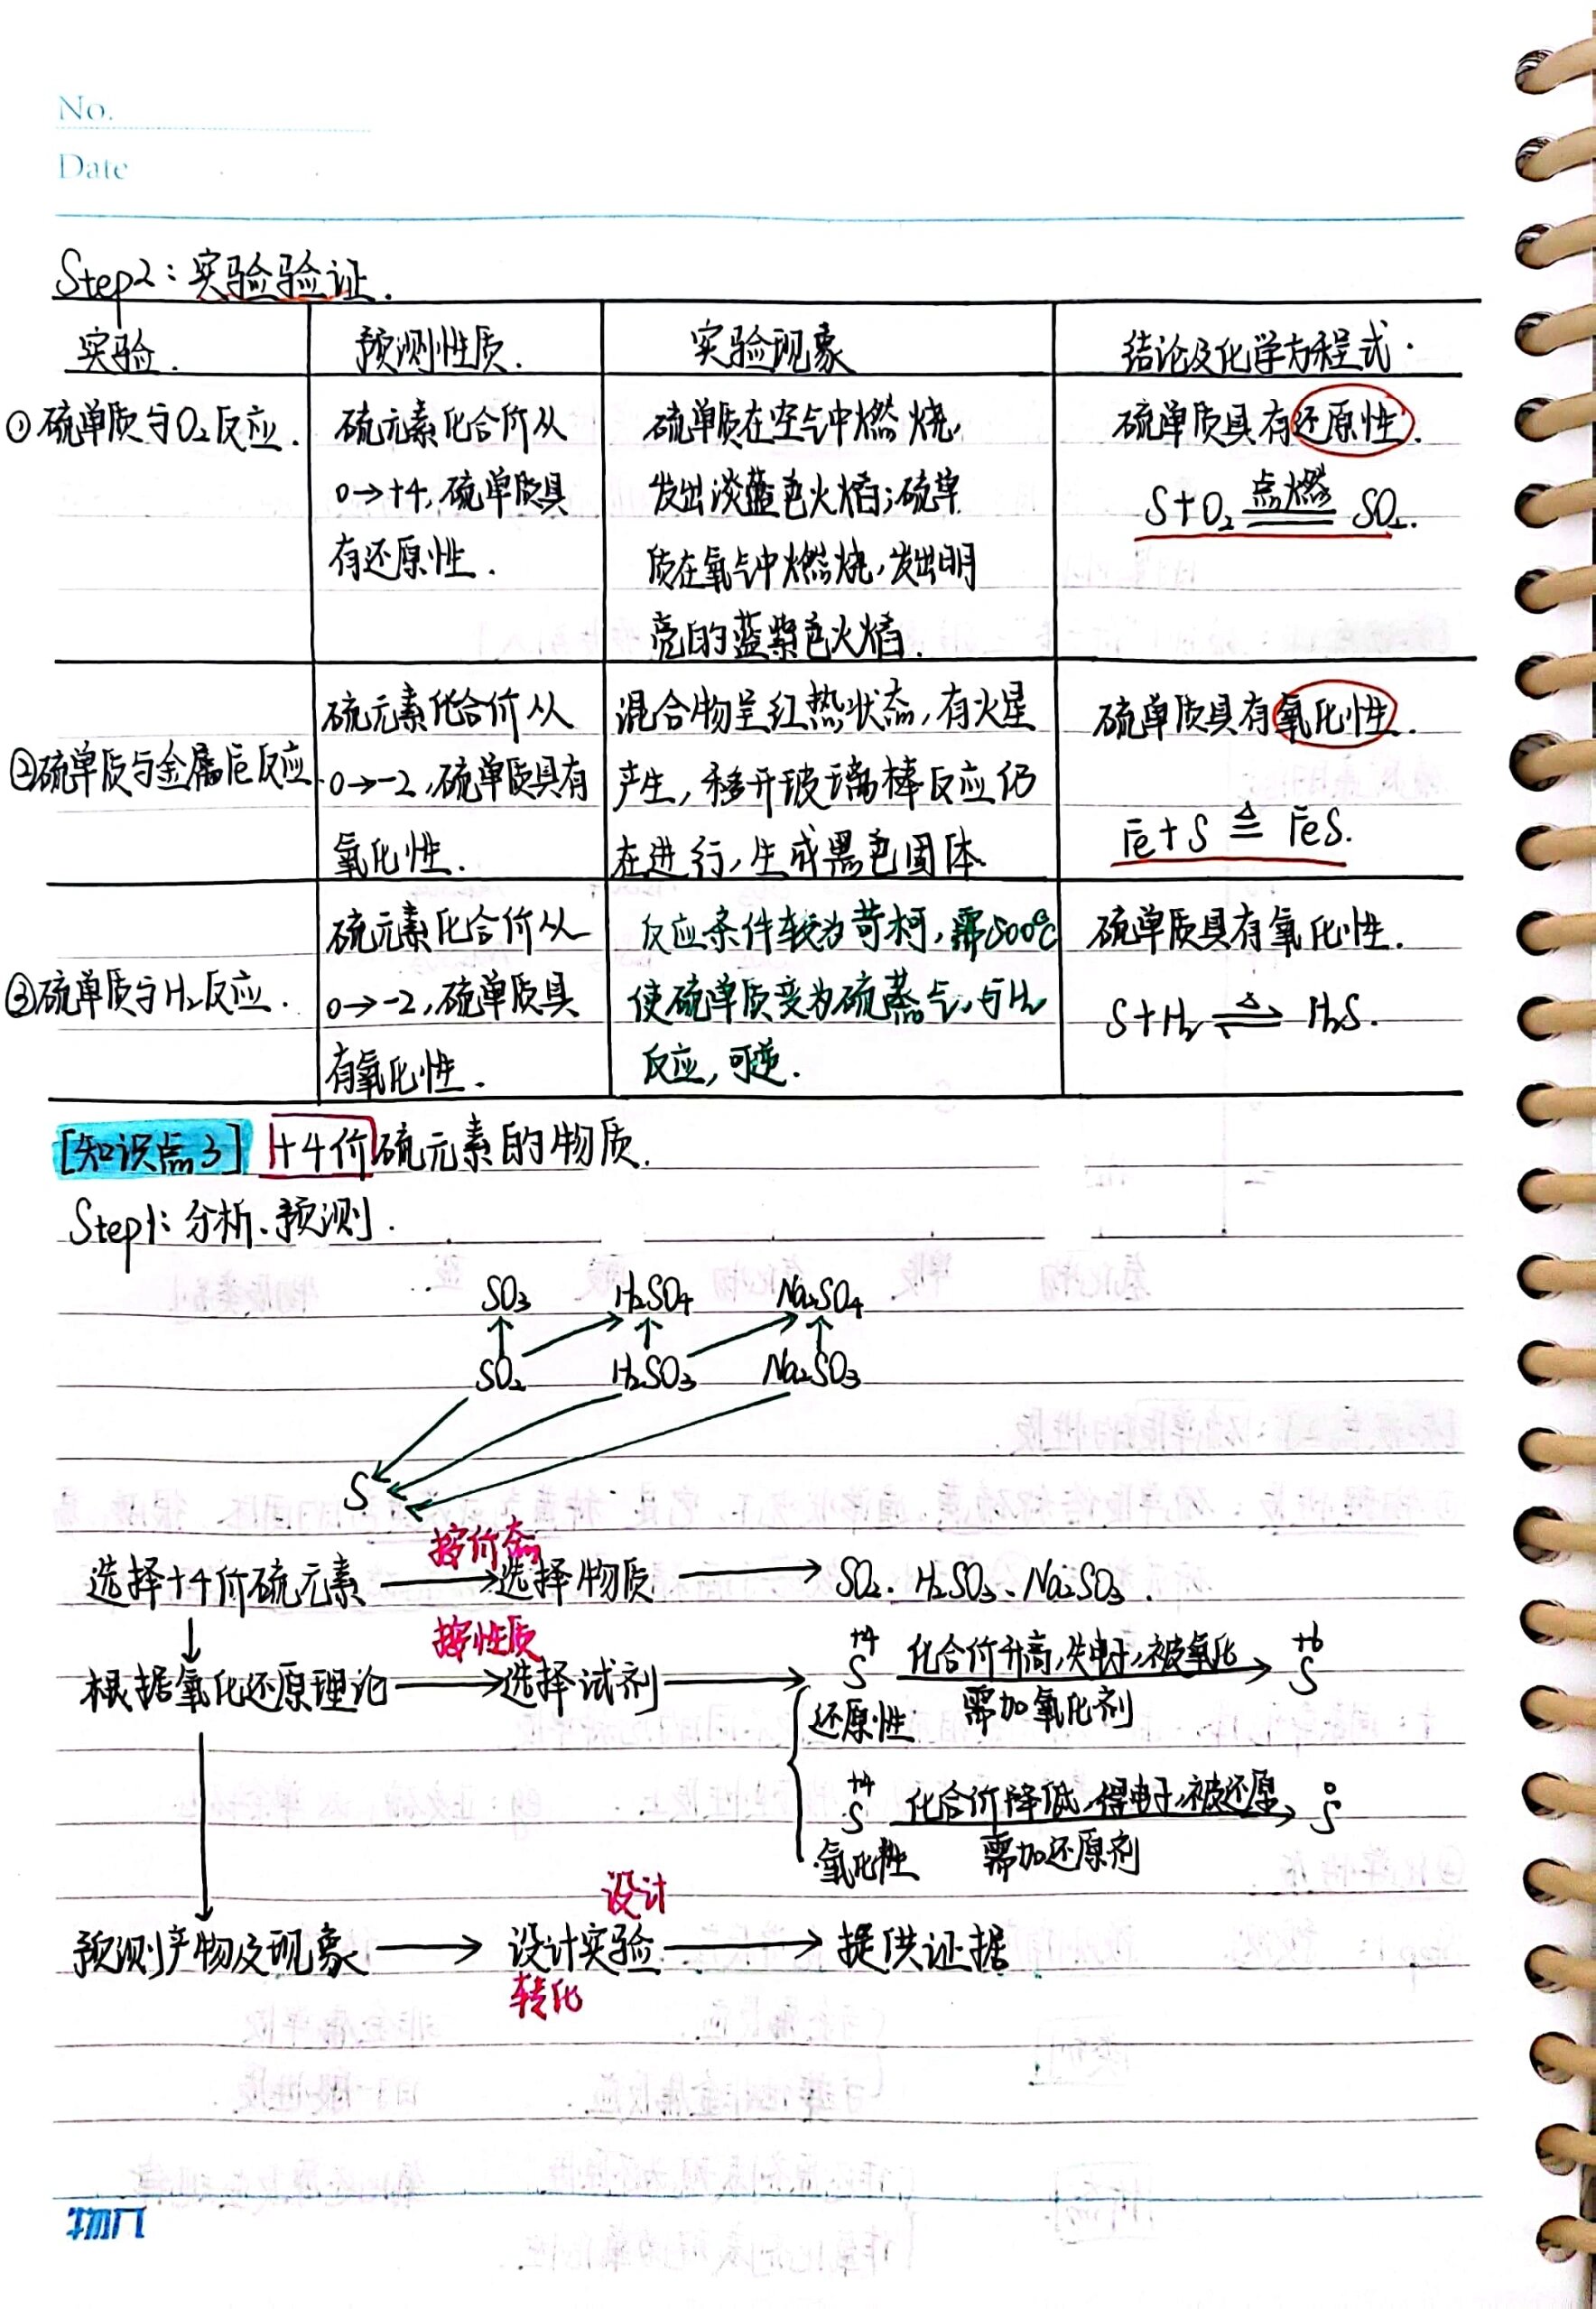 No.
Date
Step2：实验验证.
实验. 预测性质. 实验现象 结论及化学方程式.
①硫单质与O₂反应. 硫元素化合价从 硫单质在空气中燃烧, 硫单质具有还原性.
0→+4, 硫单质具 发出淡蓝色火焰；硫单 S+O₂ 点燃 SO₂.
有还原性. 质在氧气中燃烧, 发出明
亮的蓝紫色火焰.
硫元素化合价从 混合物呈红热状态, 有火星 硫单质具有氧化性.
②硫单质与金属Fe反应. 0→-2, 硫单质具有 产生, 移开玻璃棒反应仍
氧化性. 在进行, 生成黑色固体. Fe+S ≜ FeS.
硫元素化合价从 反应条件较为苛刻, 需500℃ 硫单质具有氧化性.
③硫单质与H₂反应. 0→-2, 硫单质具 使硫单质变为硫蒸气, 与H₂ S+H₂ ⇌ H₂S.
有氧化性. 反应, 可逆.
[知识点3] +4价硫元素的物质.
Step1: 分析、预测.
SO₃ H₂SO₄ Na₂SO₄
SO₂ H₂SO₃ Na₂SO₃
S
按价态
选择+4价硫元素 → 选择物质 → SO₂. H₂SO₃、Na₂SO₃.
按性质
根据氧化还原理论 → 选择试剂 → +4 S 化合价升高, 失电子, 被氧化 +6 S
还原性 需加氧化剂
+4 S 化合价降低, 得电子, 被还原 0 S
氧化性 需加还原剂
设计
预测产物及现象 → 设计实验 → 提供证据
转化